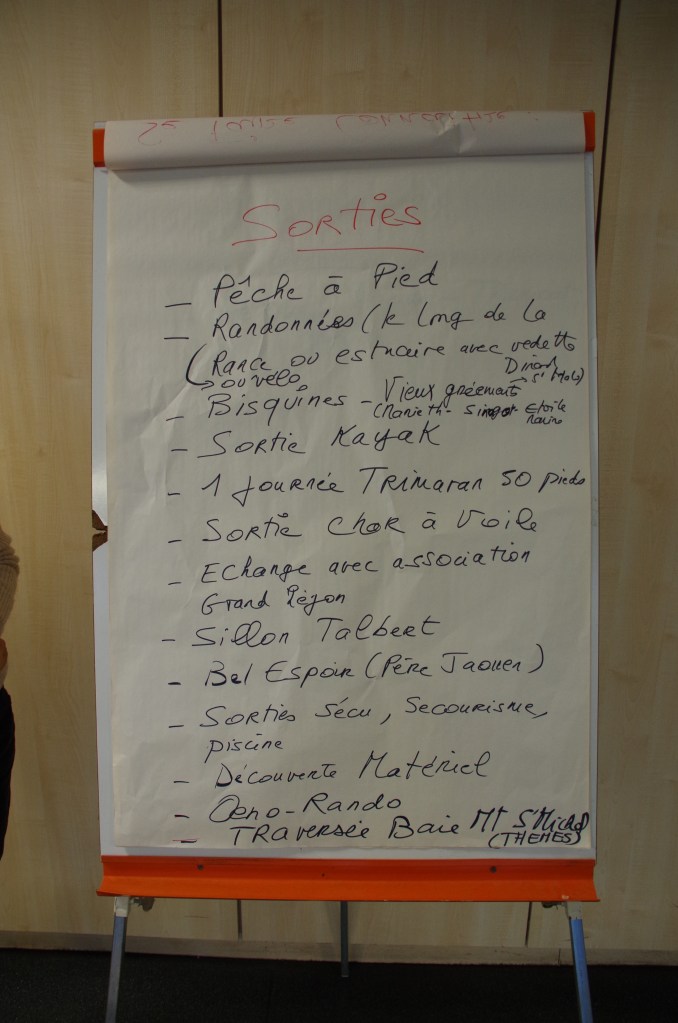 Sorties
- Pêche à Pied
- Randonnées (le long de la
Rance ou estuaire avec vedette
ou vélo
Dinard
→ St Malo)
- Bisquines - Vieux gréements
Etoile
- Sortie Kayak
- 1 journée Trimaran 50 pieds
- Sortie Char à Voile
- Echange avec association
Grand
- Sillon Talbert
- Bel Espoir (Père Jaouen)
- Sorties Sécu, Secourisme,
piscine
- Découverte Matériel
- Oeno-Rando
- TRAVERSÉE Baie Mt St Michel
(THEMES)